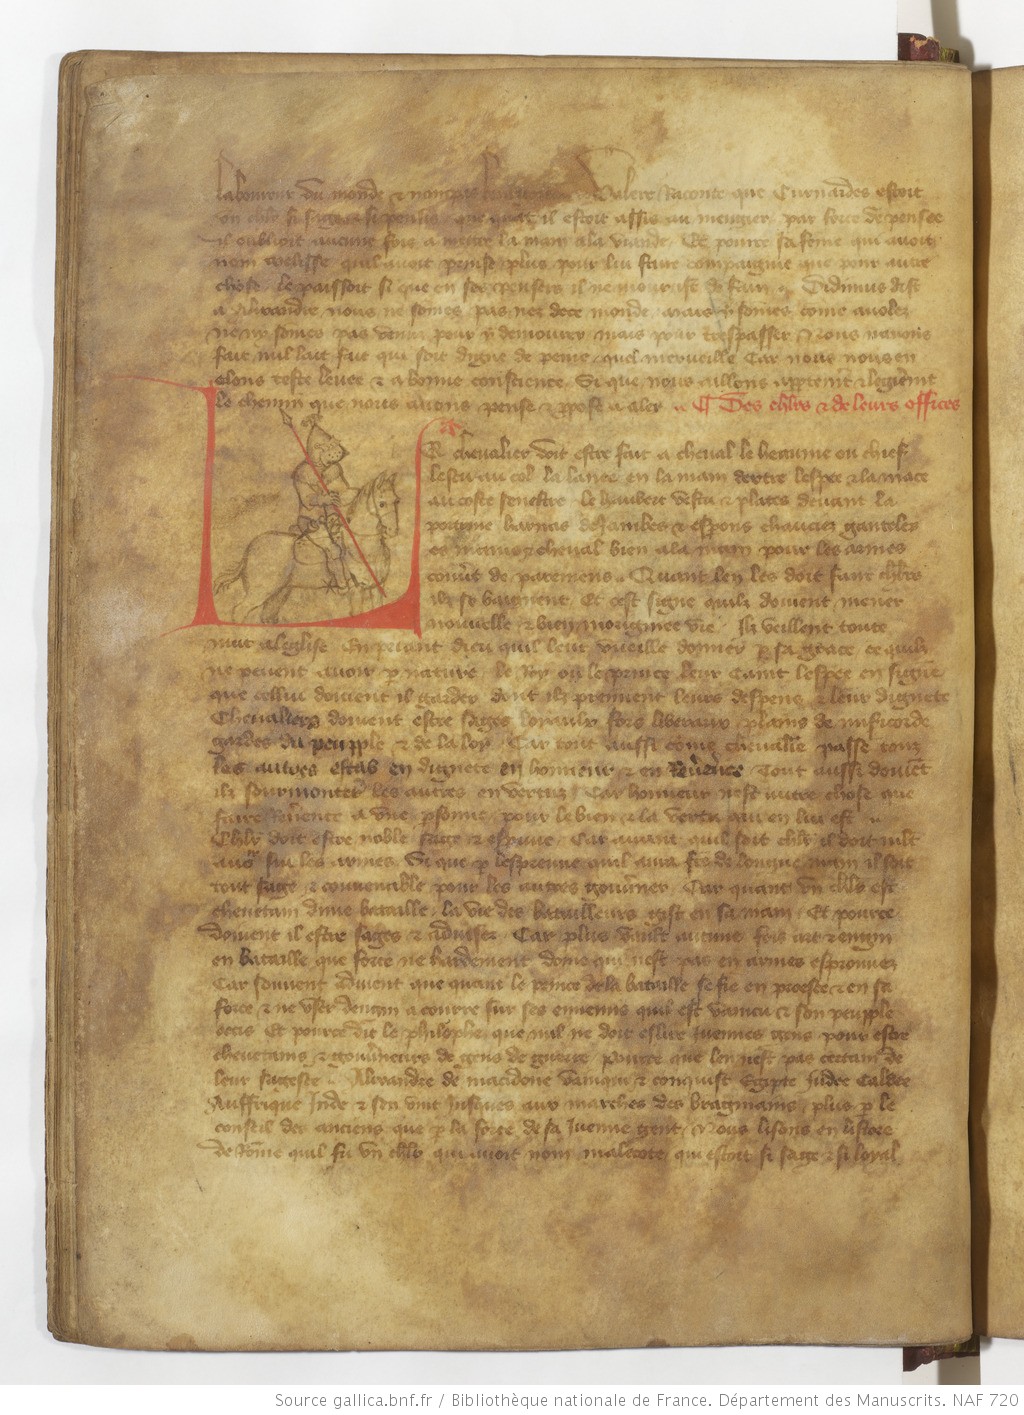 laboureur du monde & nompas Valere Raconte que Curnardes estoit
un chlr si sage & si pensis que quãt il estoit assis au mengier par force de pensee
il oublioit aucune fois a mettre la main ala viande Et pource sa feme qui avoit
nom velisse quil avoit prinse plus pour lui faire compaignie que pour autre
chose le paissoit si que en ses pensers il ne mourust de fain Didimus dist
a Alixandre nous ne somes pas nez de ce monde mais y somes come avolez
ne ny somes pas venuz pour y demourer mais pour trespasser Nous navons
fait nul lait fait qui soit digne de peine quel merveille Car nous nous en
alons teste levee & a bonne conscience Si que nous aillons appertemt & legieremt
le chemin que nous avons pense & ppose a aler ¶ Des chlrs & de leurs offices
Le chevalier doit estre fait a cheval le heaume ou chief
lescu au col la lance en la main dextre lespee & la mace
au coste senestre le haubert vestu & plates devant la
poitrine harnas de jambes & esperons chauciez gantelez
es mains cheval bien ala main pour les armes
couvt de paremens Quant len les doit faire chlrs
ilz se baignent Et cest signe quilz doivent mener
nouvelle & bien moriginee vie Ilz veillent toute
nuit a leglise En priant dieu quil leur vueille donner p sa grace ce quilz
ne pevent avoir p nature le Roy ou le prince leur caint lespee en signe
que cellui doivent il garder dont ilz prennent leurs despens & leur dignete
Chevaliers doivent estre sages loyaulx fors liberaux plains de misicorde
gardes du peupple & de la loy Car tout aussi come chevalie passe touz
les autres estas en dignete en honneur & en Reverence Tout aussi doivet
ilz sourmonter les autres en vertuz Car honneur nest autre chose que
faire Reverence a une psonne pour le bien & la vertu qui en lui est
Chlr doit estre noble sage & espuve Car avant quil soit chlr il doit mlt
avoir suy les armes Si que p lespreuve quil aura fte de longue main il soit
tout sage & convenable pour les autres gouvner Car quant un chlr est
chevetain dune bataille la vie des batailleurs gist en sa main Et pource
doivent il estre sages & advisez Car plus vault aucune fois art & engin
en bataille que force ne hardement dome qui nest pas en armes esprouvez
Car souvent advient que quant le prince de la bataille se fie en proesce & en sa
force & ne vser dengin a courre sur ses ennemis quil est vaincu & son peupple
occis Et pource dit le philosophe que nul ne doit eslire Juennes gens pour estre
chevetains & gouvneurs de gens de guerre pource que len nest pas certain de
leur sagesce Alixandre de macidone vainqui & conquist Egipte Judee Caldee
Auffrique Inde & sen vint Jusques aux marches des bragmains plus p le
conseil des anciens que p la force de sa Juenne gent Nous lisons en listoire
de Rome quil fu un chlr qui avoit nom malecote qui estoit si sage & si loyal
Source gallica.bnf.fr / Bibliothèque nationale de France. Département des Manuscrits. NAF 720